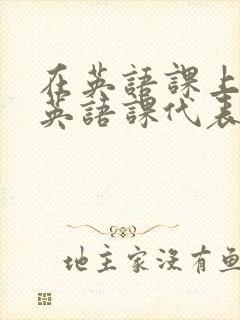 在英語課上
英語課代表
地主家沒有魚